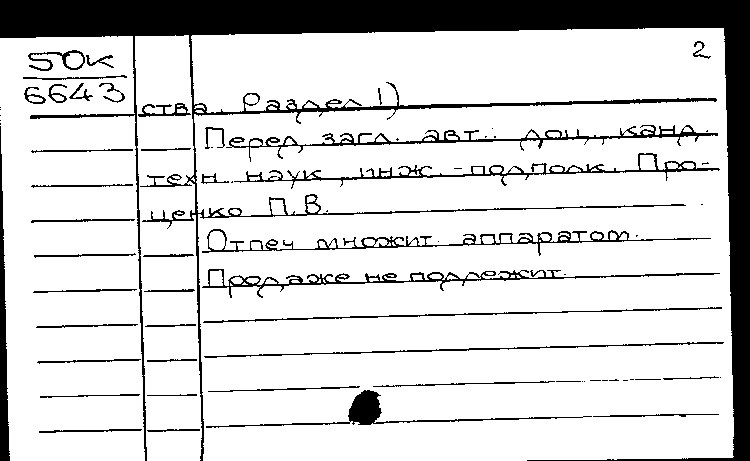 50к
6643
2
ства. Раздел 1)
Перед загл. авт.: доц., канд.
техн. наук, инж.-подполк. Про-
ценко П.В.
Отпеч. множит. аппаратом.
Продаже не подлежит.